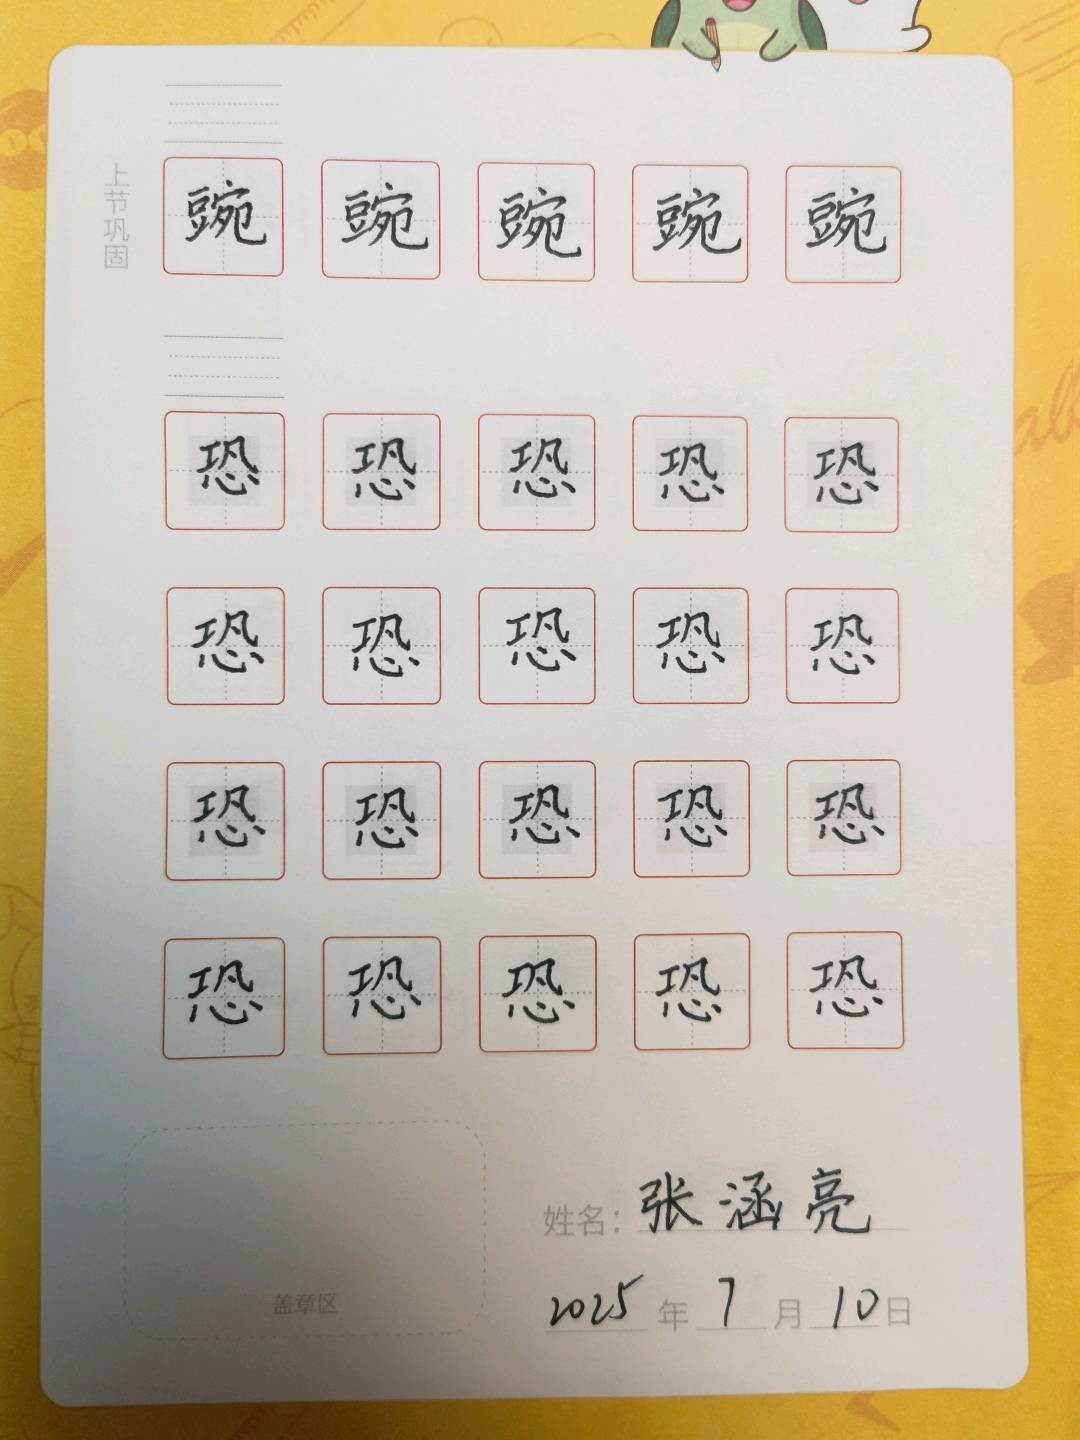 上节巩固
豌 豌 豌 豌 豌
恐 恐 恐 恐 恐
恐 恐 恐 恐 恐
恐 恐 恐 恐 恐
恐 恐 恐 恐 恐
姓名：张涵亮
盖章区
2025年7月10日